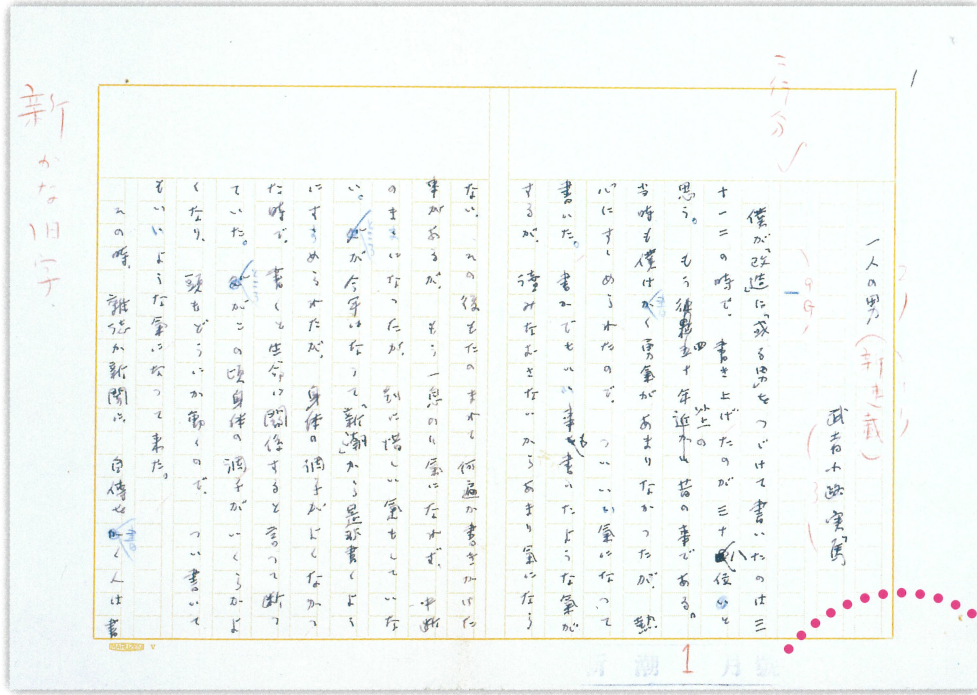 1
二行分
一人の男（新連載）
武者小路実篤
僕が「改造」に「或る男」をつづけて書いたのは三
十一二の時で、書き上げたのが三十八位いと
思う。もう彼是四十年以上の昔の事である。
当時も僕はかく勇氣があまりなかつたが、熱
心にすゝめられたので、ついいゝ氣になつて
書いた。書かでもいゝ事も書いたような氣が
するが、讀みなおさないからあまり氣になら
ない。その後もたのまれて何遍か書きかけた
事があるが、もう一息のり氣になれず、中断
のまゝになつたが、別に惜しい氣もしていな
い。が今年になつて「新潮」から是非書くよう
にすゝめられたが、身体の調子がよくなかつ
た時で、書くと生命に関係すると言つて断つ
ていた。がこの頃身体の調子がいくらかよ
くなり、頭もどうにか動くので、つい書いて
もいいような氣になつて来た。
その時、雜誌か新聞に、自傳をかく人は書
新かな旧字
新潮 1 月號